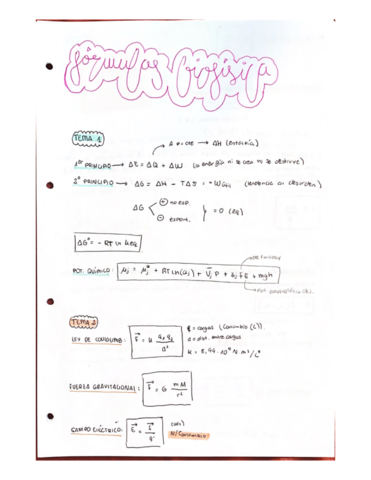 fórmulas biofísica
TEMA 1
a P = cte → ΔH (entalpía)
1er PRINCIPIO → ΔE = ΔQ + ΔW (la energía ni se crea ni se destruye)
2º PRINCIPIO → ΔG = ΔH - TΔS = -Wútil (tendencia al desorden)
ΔG + no esp. - espont. = 0 (eq)
ΔG° = -RT ln Keq
POT. QUÍMICO: μj = μj* + RT ln(aj) + V̄j P + zj F E + mgh
TEMA 2
q = cargas (Coulombio (C))
LEY DE COULOMB: F = K q1 q2 / d² d = dist. entre cargas
K = 8,99·10⁹ N m²/C²
FUERZA GRAVITACIONAL: F = G m M / r²
CAMPO ELÉCTRICO: E = F / q
N/Coulombio